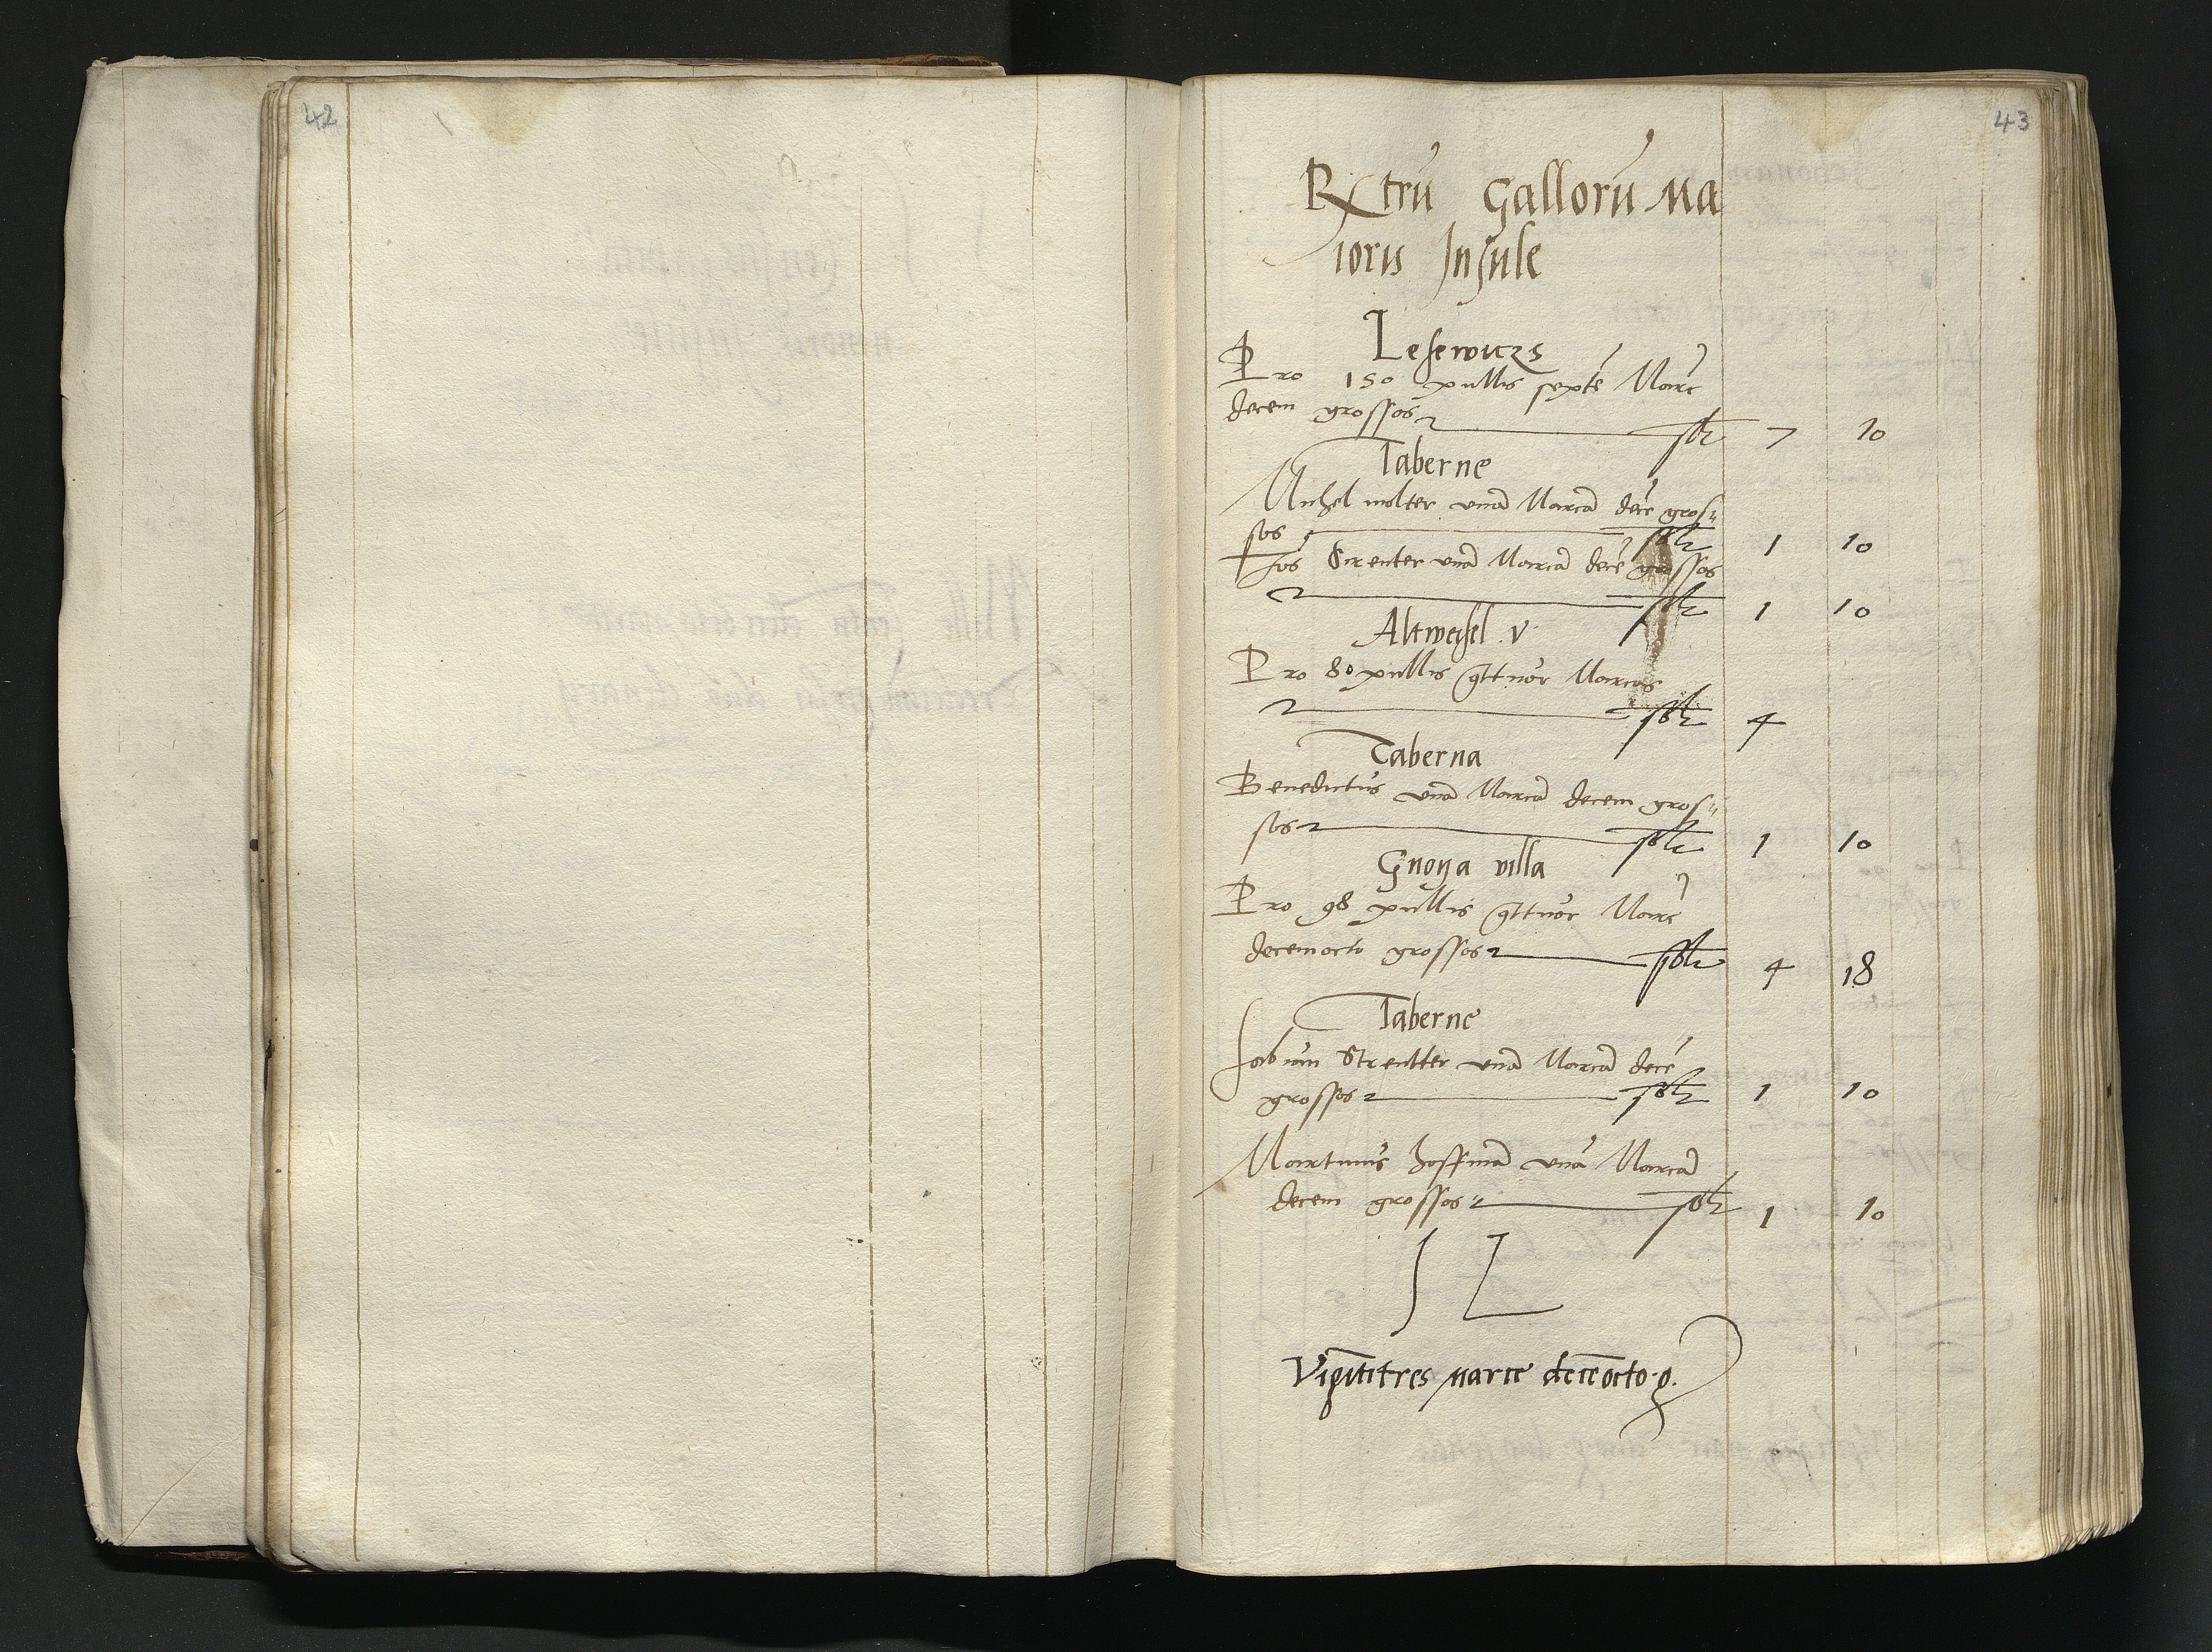 42
43
Rxtrū Gallorū Ma
ioris Insule
Lesewitzs
Pro 150 pullis septē Marc
decem grossos slt 7 10
Taberne
Michel molter vnā Marcā decē gros„
sos slt 1 10
Jos Streuter vnā Marcā decē grossos
slt 1 10
Altweihsel v
Pro 80 pullis qttuor Marcas
slt 4
Taberna
Benedictus vnā Marcā decem gros„
sos slt 1 10
Gnoya villa
Pro 98 pullis qttuor Marc
decemocto grossos slt 4 18
Taberne
Fabian Streutter vnā Marcā decē
grossos slt 1 10
Martinus hoffmā vnā Marcā
decem grossos slt 1 10
S L
Vigītitres marce decēocto g.